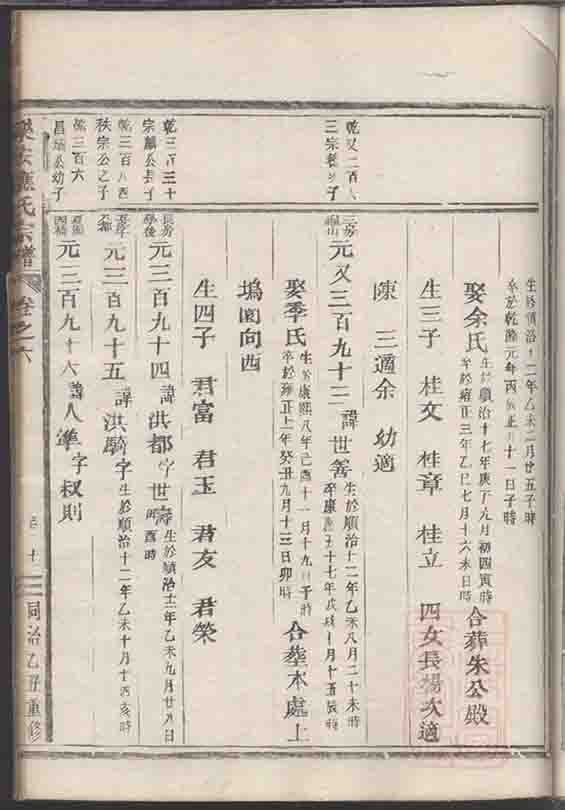 生於順治十二年乙未二月廿五子時
卒於乾隆元年丙辰正月十一日子時
娶余氏
生於順治十七年庚子九月初四寅時
卒於雍正三年乙巳七月十六未日時
合葬朱公殿
生三子 桂文 桂章 桂立 四女長楊次適
陳 三適余 幼適
乾又二百八
三宗養次子
三房
元又三百九十三 諱世善
生於順治十二年乙未八月二十未時
卒康熙五十七年戊戌十月十五辰時
娶季氏
生於康熙八年己酉十一月十九日子時
卒於雍正十一年癸丑九月十三日卯時
合葬本處上
塢園向西
生四子 君富 君玉 君友 君榮
乾三百三十
宗麟公長子
長房
學後
元三百九十四 諱洪都字世壽
生於順治十二年乙未九月廿九日
酉時
乾三百八四
秩宗公之子
元三百九十五 諱洪騎字
生於順治十二年乙未十月十四亥時
乾三百六
昌 公幼子
元三百九十六 諱人準字叔則
樂安 氏宗譜 卷之六
同治乙丑重修